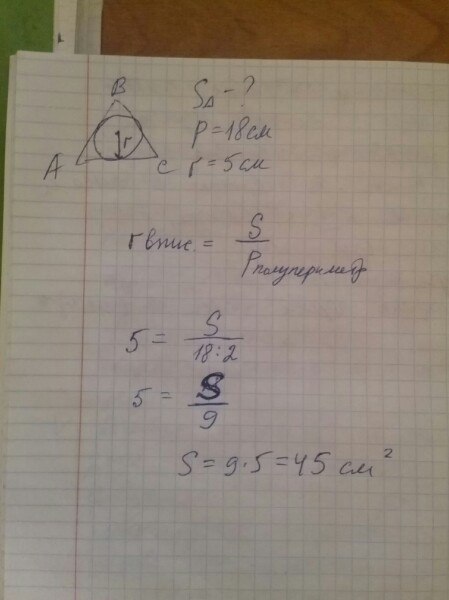 B
A
r
C
S△ - ?
P = 18 см
r = 5 см
r впис. = S / P полупериметр
5 = S / 18:2
5 = S / 9
S = 9·5 = 45 см²